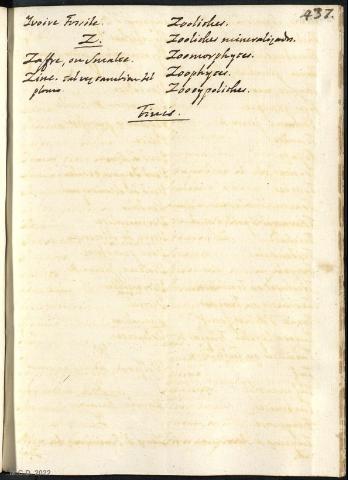 437.
Ivoire Fossile.
Z.
Zaffre, ou Smalte.
Zinc. tal vez tambien del
plomo.
Zoolithes.
Zoolithes mineralizados.
Zoomorphytes.
Zoophytes.
Zootypolithes.
Finis.
2022